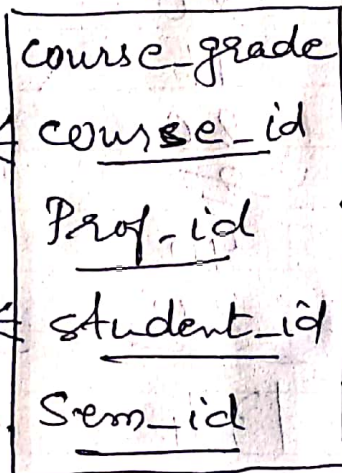 course_grade
course_id
Prof_id
student_id
Sem_id